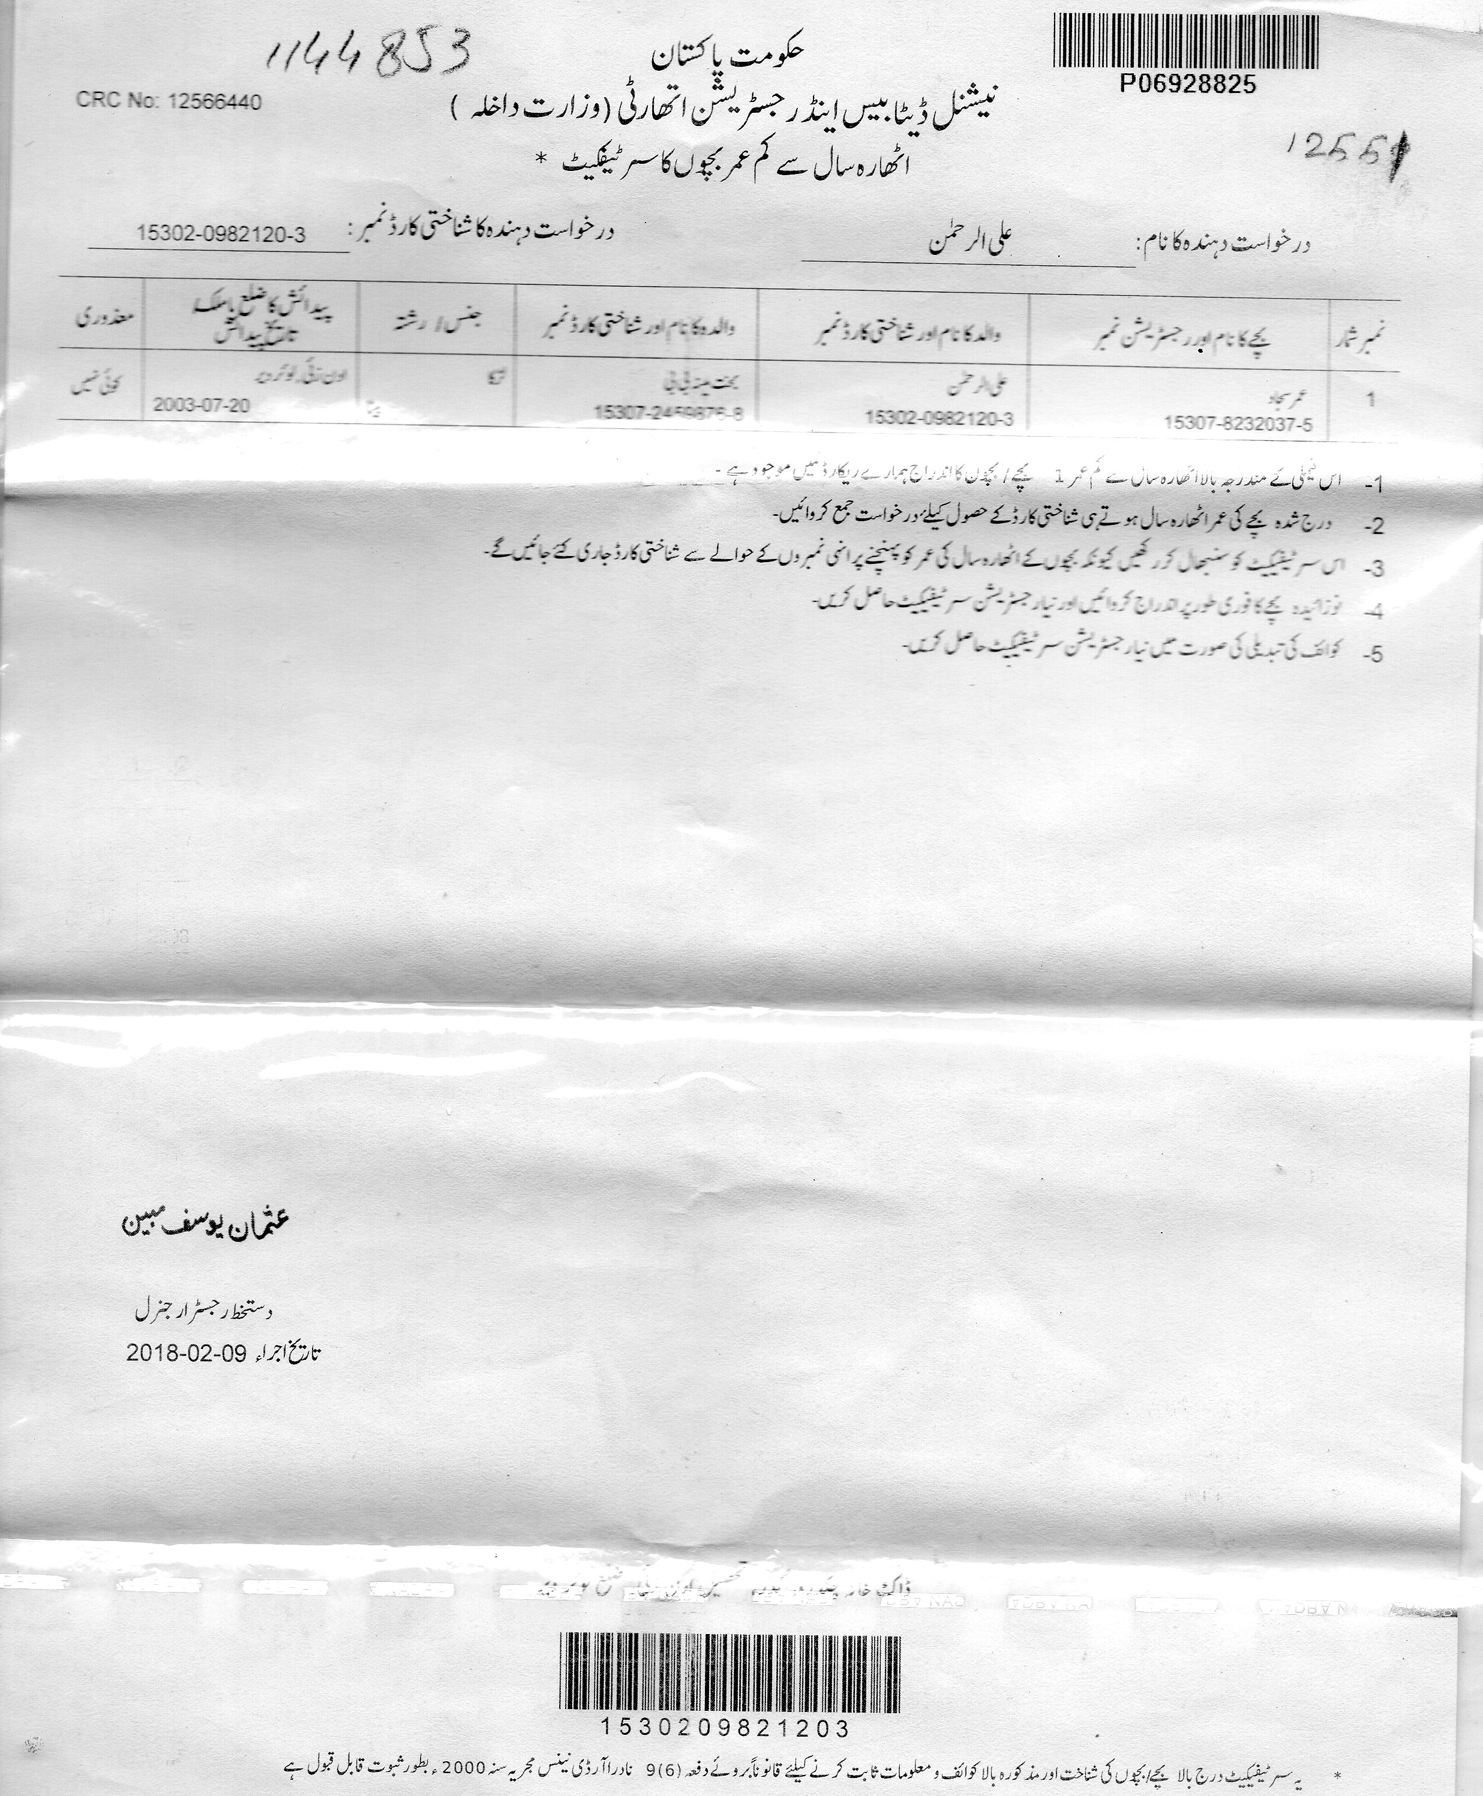 1144853
حکومت پاکستان
P06928825
CRC No: 12566440
نیشنل ڈیٹا بیس اینڈ رجسٹریشن اتھارٹی (وزارت داخلہ )
1255
اٹھارہ سال سے کم عمر بچوں کا سرٹیفکیٹ *
درخواست دہندہ کا نام: علی الرحمٰن
درخواست دہندہ کا شناختی کارڈ نمبر: 15302-0982120-3
نمبر شمار بچے کا نام اور رجسٹریشن نمبر والد کا نام اور شناختی کارڈ نمبر والدہ کا نام اور شناختی کارڈ نمبر جنس / رشتہ پیدائش کا ضلع یا ملک/ معذوری
تاریخ پیدائش
1 عمر سجاد علی الرحمٰن بی بی لڑکا کوئی نہیں
15307-8232037-5 15302-0982120-3 15307-2459876-8 بیٹا 2003-07-20
1- اس فیملی کے مندرجہ بالا اٹھارہ سال سے کم عمر 1 بچے / بچوں کا اندراج ہمارے ریکارڈ میں موجود ہے -
2- درج شدہ بچے کی عمر اٹھارہ سال ہوتے ہی شناختی کارڈ کے حصول کیلئے درخواست جمع کروائیں-
3- اس سرٹیفیکیٹ کو سنبھال کر رکھیں کیونکہ بچوں کے اٹھارہ سال کی عمر کو پہنچنے پر انہی نمبروں کے حوالے سے شناختی کارڈ جاری کئے جائیں گے-
4- نوزائیدہ بچے کا فوری طور پر اندراج کروائیں اور نیا رجسٹریشن سرٹیفیکیٹ حاصل کریں-
5- کوائف کی تبدیلی کی صورت میں نیا رجسٹریشن سرٹیفیکیٹ حاصل کریں-
عثمان یوسف مبین
دستخط رجسٹرار جنرل
تاریخ اجراء 2018-02-09
ڈاک خانہ
1530209821203
* یہ سرٹیفیکیٹ درج بالا بچے/بچوں کی شناخت اور مذکورہ بالا کوائف و معلومات ثابت کرنے کیلئے قانوناً بروئے دفعہ (6)9 نادرا آرڈی نینس مجریہ سنہ 2000ء بطور ثبوت قابل قبول ہے